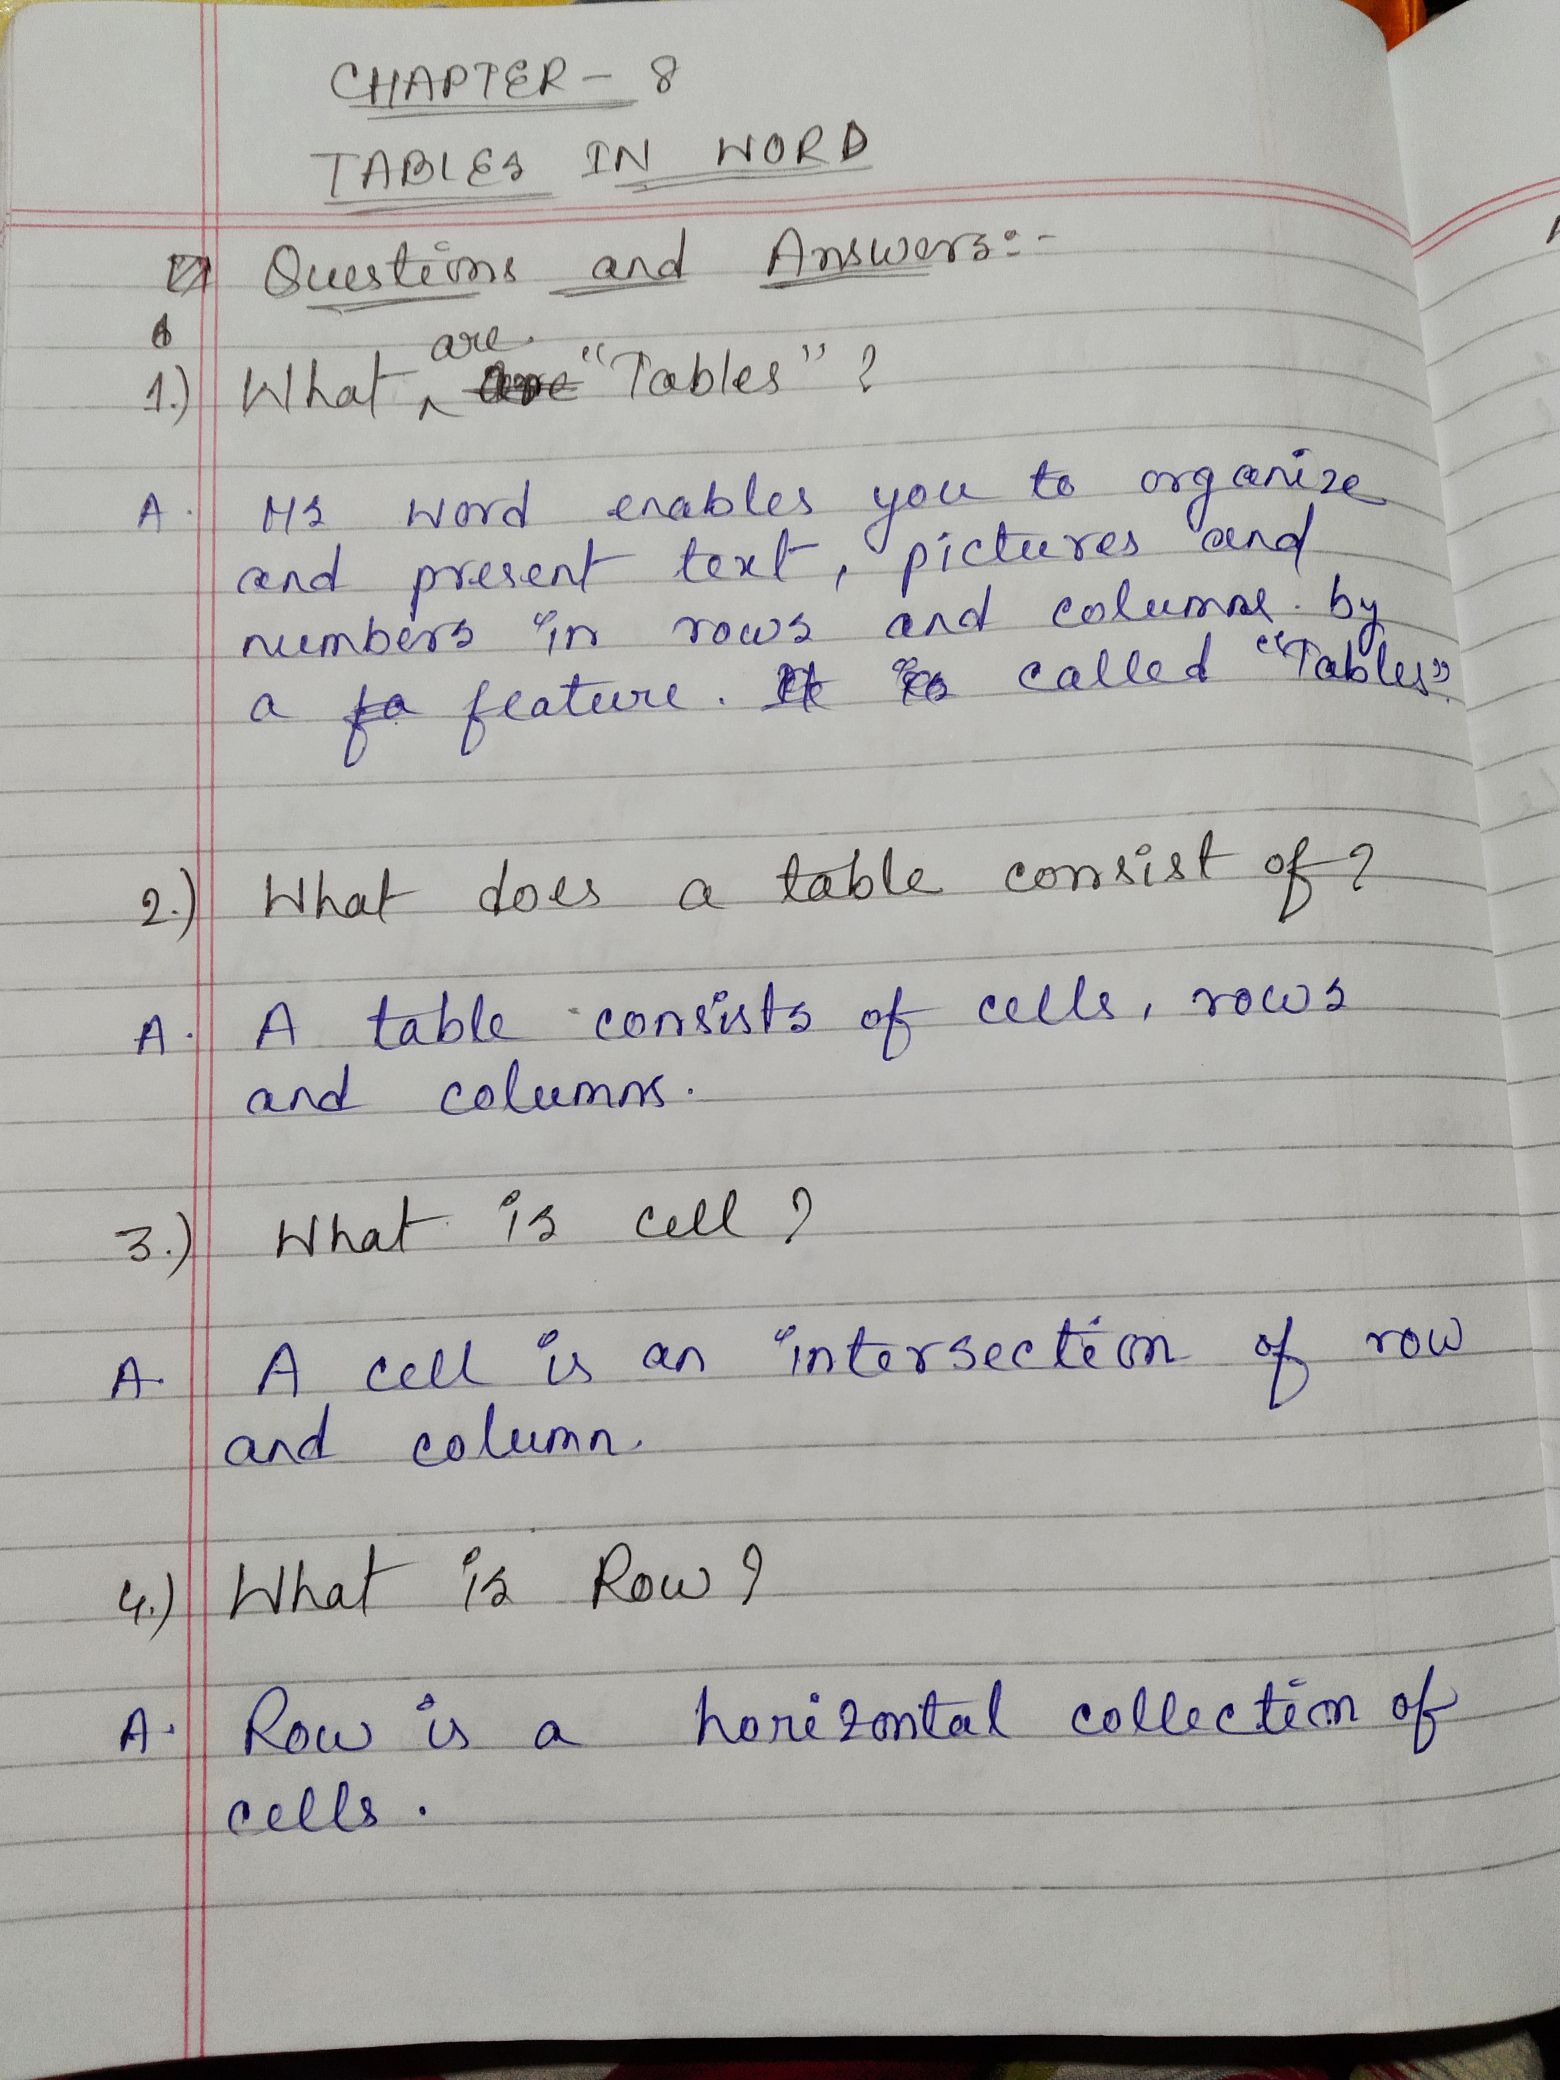 CHAPTER - 8
TABLES IN WORD
Questions and Answers:-
1.) What are "Tables" ?
A. MS Word enables you to organize
and present text, pictures and
numbers in rows and columns by
a feature. It is called "Tables".
2.) What does a table consist of ?
A. A table consists of cells, rows
and columns.
3.) What is cell ?
A. A cell is an intersection of row
and column.
4.) What is Row ?
A. Row is a horizontal collection of
cells.